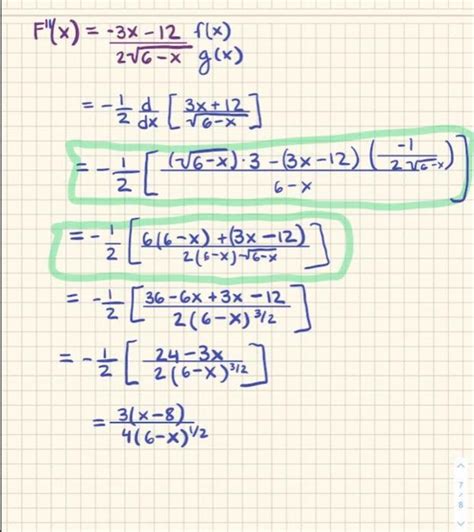 F''(x) = -3x - 12 / 2√6-x f(x) g(x)
= -1/2 d/dx [3x + 12 / √6-x]
= -1/2 [(√6-x)·3 - (3x - 12)(-1 / 2√6-x) / 6-x]
= -1/2 [6(6-x) + (3x - 12) / 2(6-x)√6-x]
= -1/2 [36 - 6x + 3x - 12 / 2(6-x)^3/2]
= -1/2 [24 - 3x / 2(6-x)^3/2]
= 3(x - 8) / 4(6-x)^1/2
7
/
8